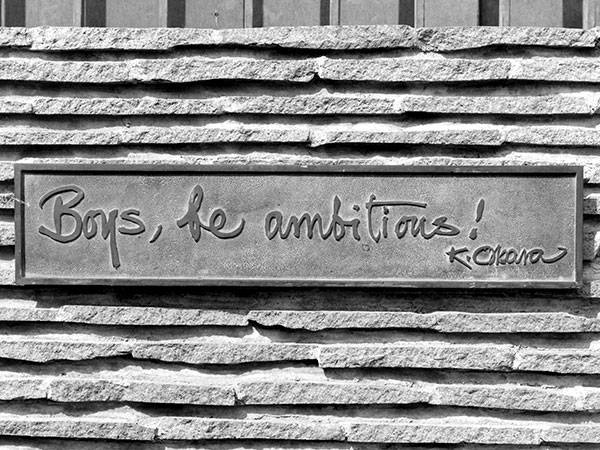 Boys, be ambitious!
K. Okara